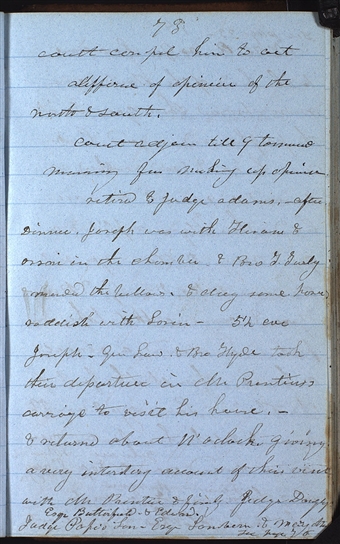 78
court compel him to act
difference of opinion of the
north & south.
Court adjourn till 9 tomorrow
morning for making up opinion
retired to Judge Adams, - after
Dinner. Joseph was with Hiram &
orson in the chamber & Bro T. Turly
& the & dug some horse
raddish with Lorin - 5½ eve
Joseph - Gen Law & Bro Hyde took
their departure in Mr Prentiss
carriage to visit his house. -
& returned about 11 oclock. Giving
a very interesting account of their visit
with Mr Prentice & family Judge Douglas
Esqr Butterfield - & Edward,
Judge Pope's Son - Esqr Sanburn
See page